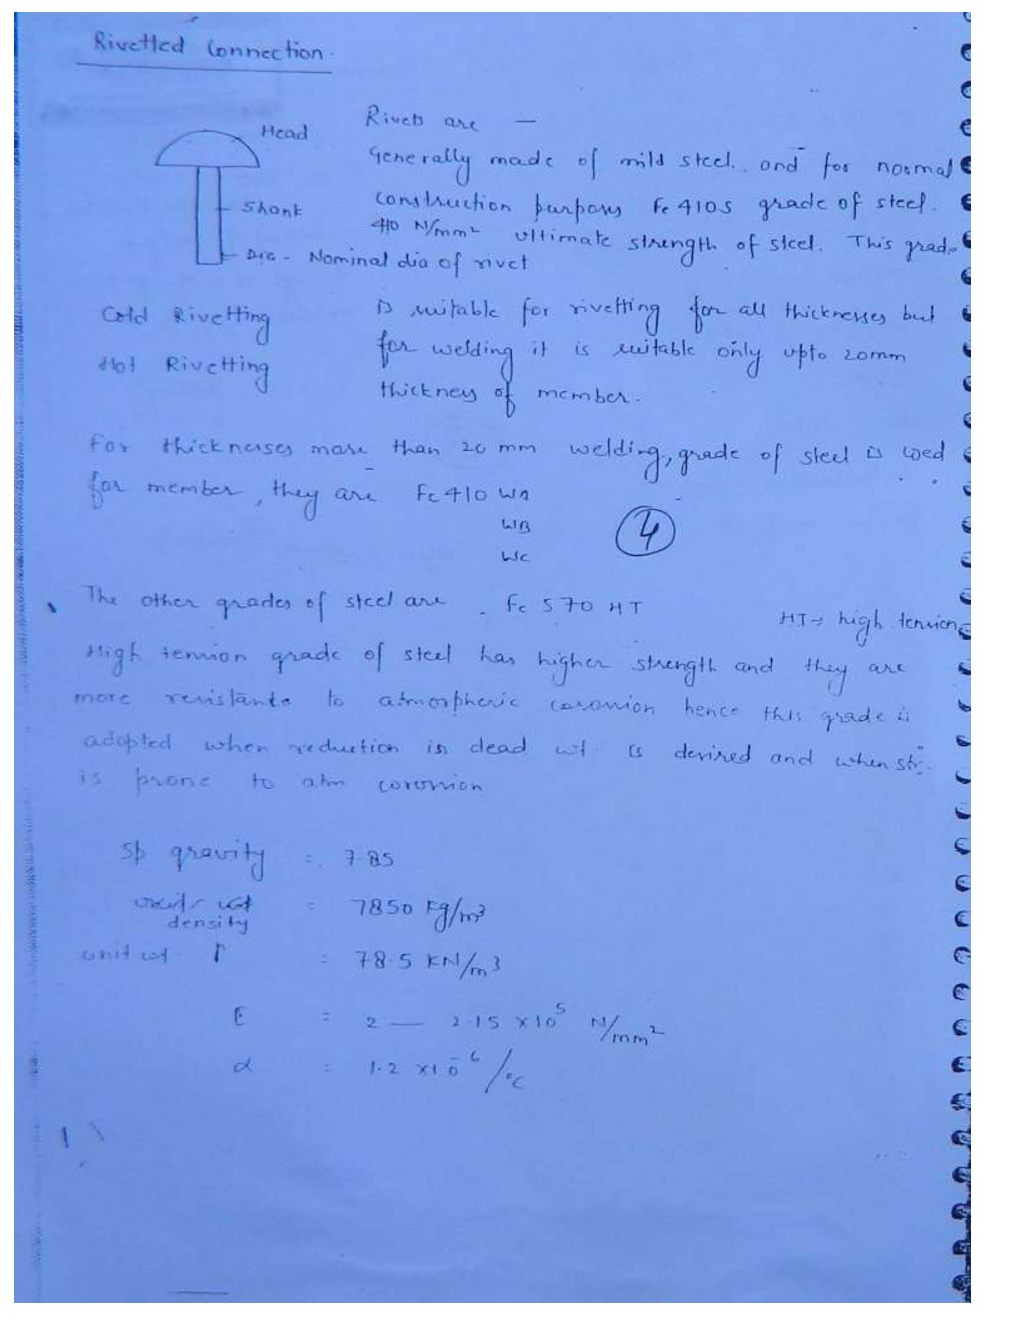 Rivetted Connection.
Head
Shank
Dia - Nominal dia of rivet
Rivets are —
Generally made of mild steel. and for normal
construction purposes Fe 410S grade of steel.
410 N/mm² ultimate strength of steel. This grade
Cold Rivetting
Hot Rivetting
is suitable for rivetting for all thicknesses but
for welding it is suitable only upto 20mm
thickness of member.
For thicknesses more than 20 mm welding, grade of steel is used
for member, they are Fe 410 WA
WB
WC
4
The other grades of steel are . Fe 570 HT
HT → high tension
High tension grade of steel has higher strength and they are
more resistante to atmospheric corrosion hence this grade is
adopted when reduction in dead wt. is desired and when str.
is prone to atm corrosion
Sp gravity = 7.85
density = 7850 kg/m³
unit wt. Γ = 78.5 KN/m³
E = 2 — 2.15 x10⁵ N/mm²
α = 1.2 x10⁻⁶ /°C